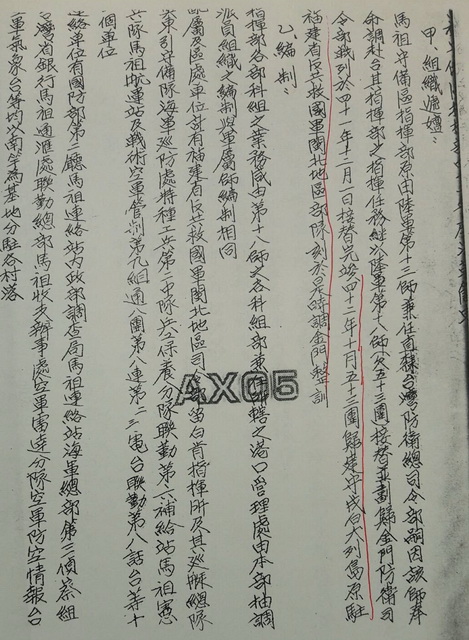 甲、組織遞嬗：
馬祖守備區指揮部原由陸軍第十三師兼任直隸台灣防衛總司令部嗣因該師奉
命調赴台其指揮任務繼以陸軍第十八師及五十三團接替並劃歸金門防衛司
令部戰列於四十一年十二月一日接替完竣四十二年十月五十三團歸建中戍白犬列島原駐
福建省反共救國軍閩北地區部隊刻於是時調金門整訓
乙、編制：
指揮部各部科組之業務咸由第十八師之各科組部兼任所轄之港口管理處由本部抽調
派員組織之編制與軍屬師編制相同
配屬及區處單位計有福建省反共救國軍閩北地區司令部留白肯指揮所及其巡艇總隊
東引守備隊海軍巡防處特種工兵第二中隊兵工保養分隊聯勤第六補給站馬祖憲
兵隊馬祖航運站及戰術空軍管制第九組通八團第八連第二三電台聯勤第八話台等十
個單位
連絡單位有國防部第二廳馬祖連絡站內政部調查局馬祖連絡站海軍總部第三偵察組
台灣省銀行馬祖通滙處聯勤總部馬祖收支辦事處空軍雷達分隊空軍防空情報台
軍氣象台等均以南竿為基地分駐各村落
AX05